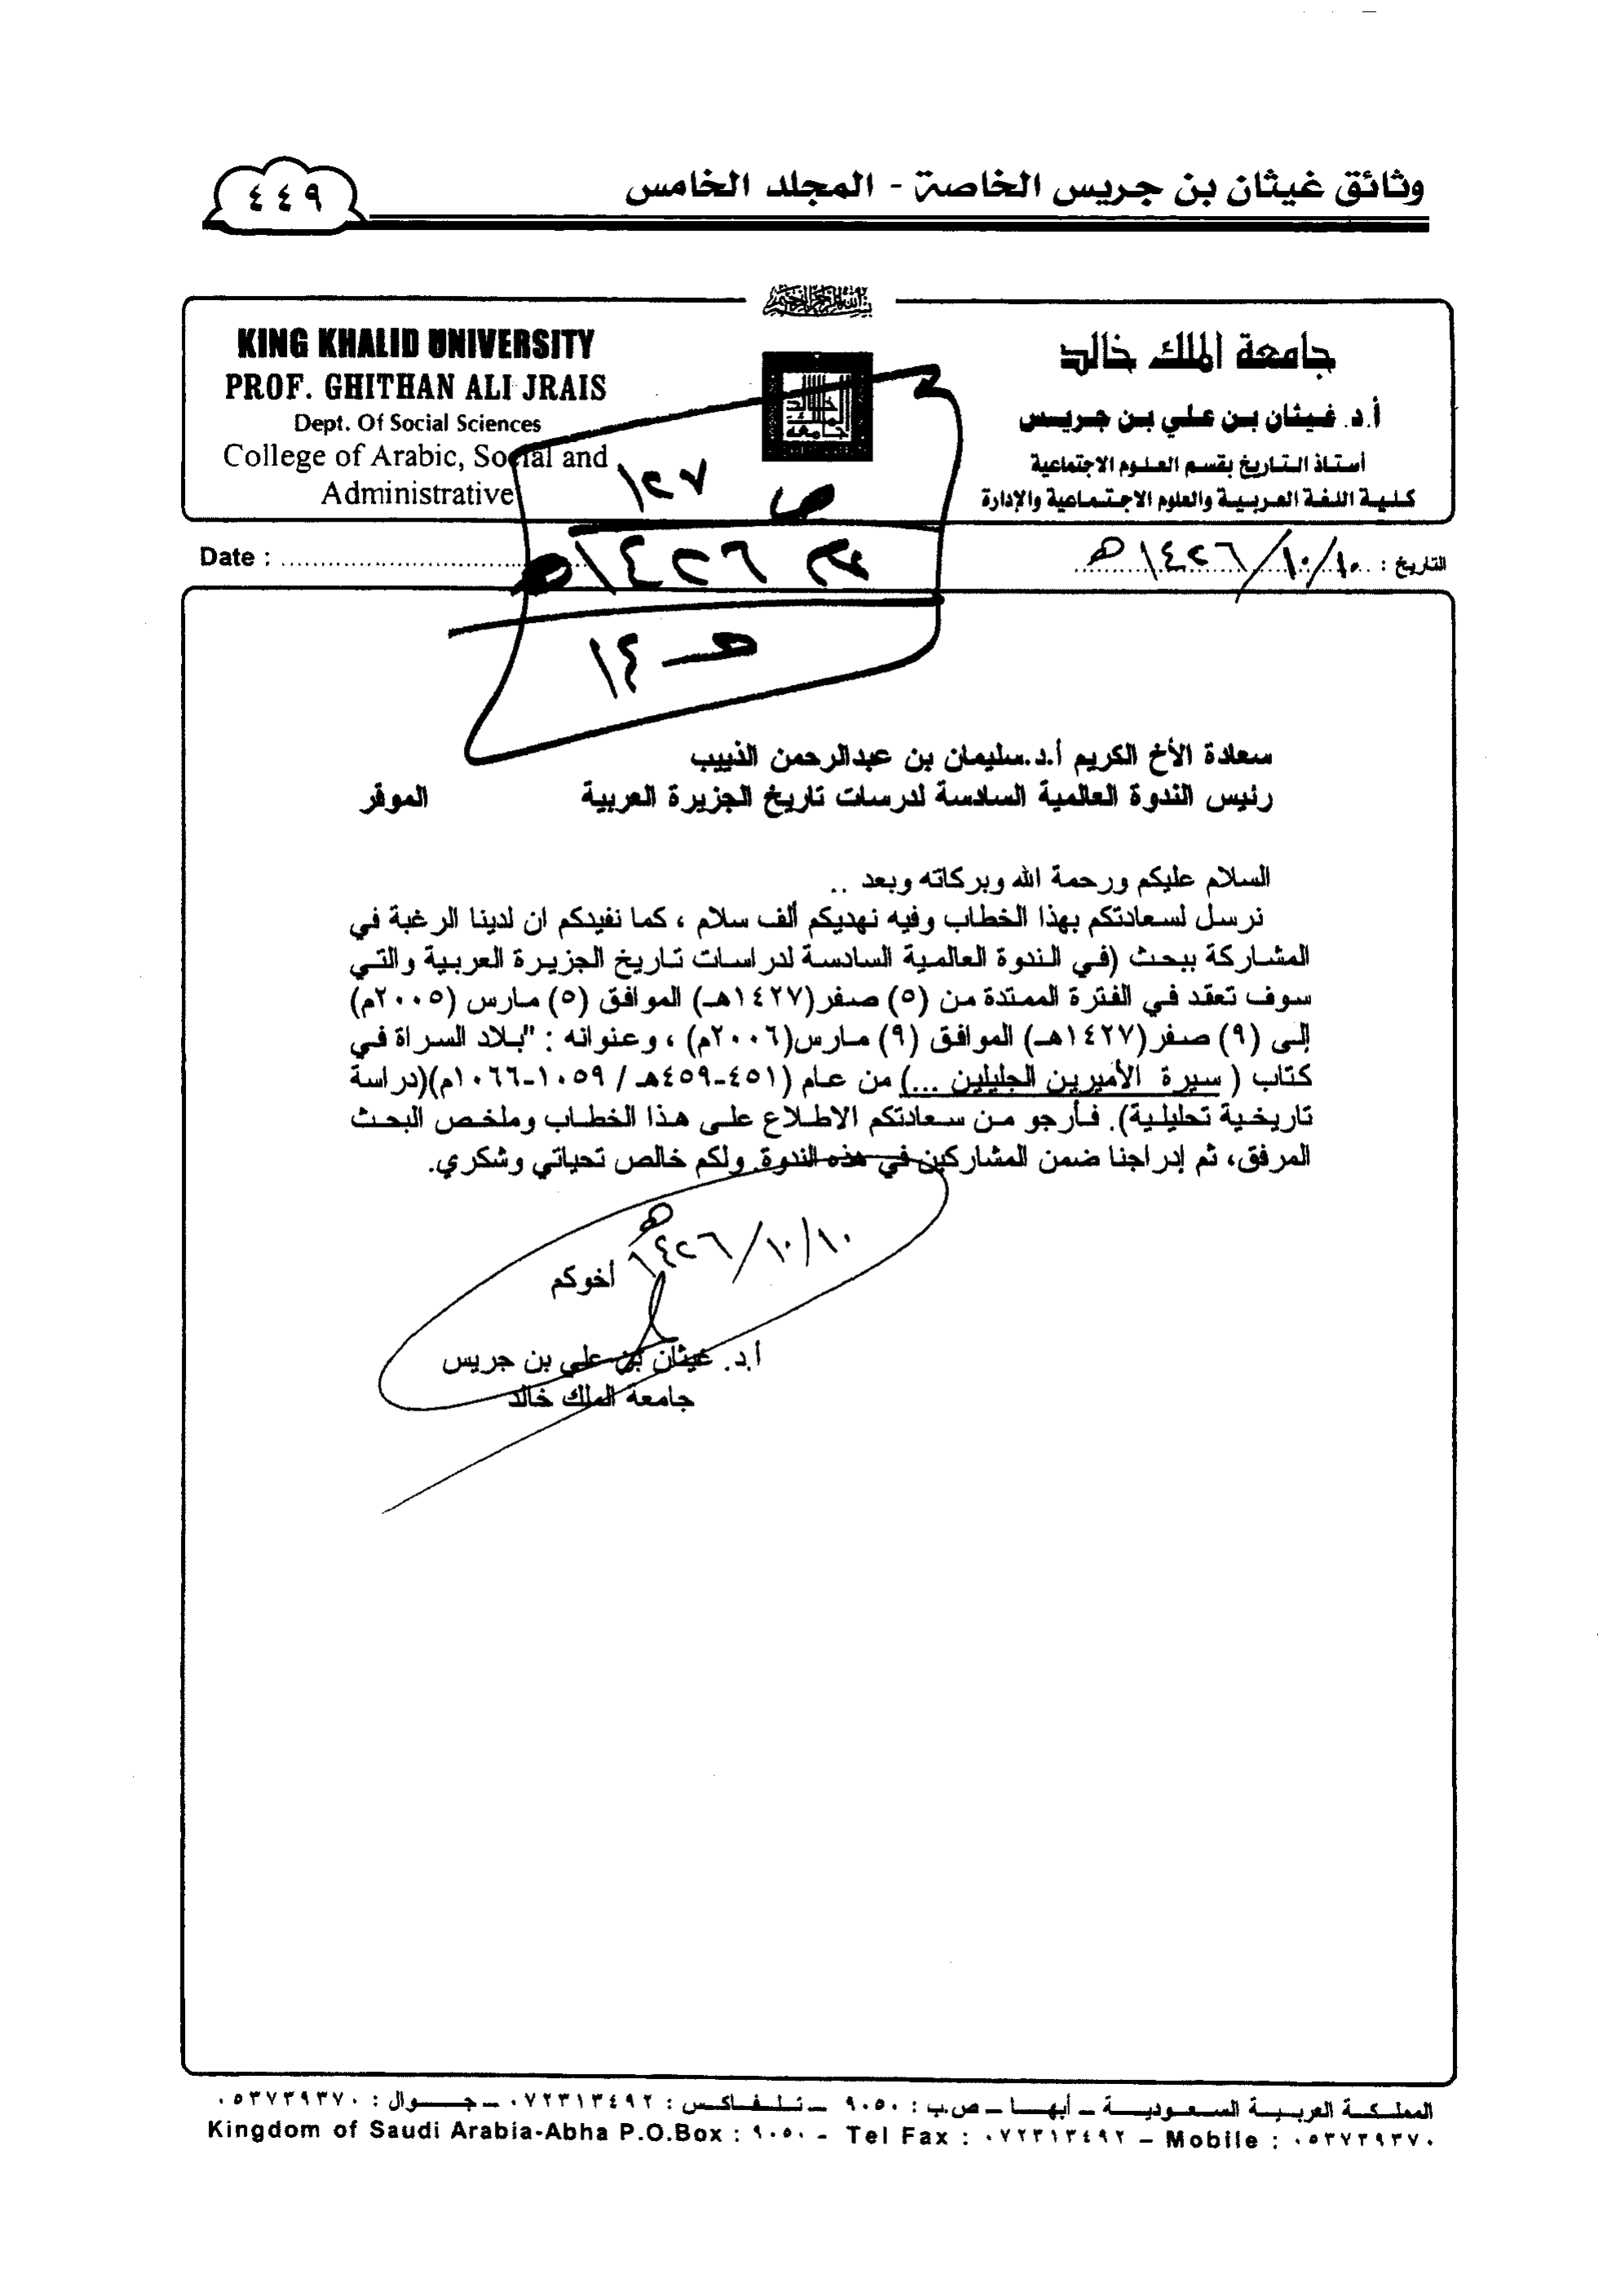 وثائق غيثان بن جريس الخاصة - المجلد الخامس
٤٤٩
بسم الله الرحمن الرحيم
جامعة الملك خالد
أ.د. غيثان بن علي بن جريس
أستاذ التاريخ بقسم العلوم الاجتماعية
كلية اللغة العربية والعلوم الاجتماعية والإدارة
KING KHALID UNIVERSITY
PROF. GHITHAN ALI JRAIS
Dept. Of Social Sciences
College of Arabic, Social and
Administrative
جامعة الملك خالد
ص ١٢٧
١٤٢٦
١٤
التاريخ : ١٠/١٠/١٤٢٦هـ
Date :
سعادة الأخ الكريم أ.د.سليمان بن عبدالرحمن الذييب
رئيس الندوة العالمية السادسة لدرسات تاريخ الجزيرة العربية الموقر
السلام عليكم ورحمة الله وبركاته وبعد ..
نرسل لسعادتكم بهذا الخطاب وفيه نهديكم ألف سلام ، كما نفيدكم ان لدينا الرغبة في
المشاركة ببحث (في الندوة العالمية السادسة لدراسات تاريخ الجزيرة العربية والتي
سوف تعقد في الفترة الممتدة من (٥) صفر(١٤٢٧هـ) الموافق (٥) مارس (٢٠٠٥م)
إلى (٩) صفر(١٤٢٧هـ) الموافق (٩) مارس(٢٠٠٦م) ، وعنوانه : "بلاد السراة في
كتاب ( سيرة الأميرين الجليلين ...) من عام (٤٥١-٤٥٩هـ / ١٠٥٩-١٠٦٦م)(دراسة
تاريخية تحليلية). فأرجو من سعادتكم الاطلاع على هذا الخطاب وملخص البحث
المرفق، ثم إدراجنا ضمن المشاركين في هذه الندوة. ولكم خالص تحياتي وشكري.
١٠/١٠/١٤٢٦هـ
أخوكم
أ.د. غيثان بن علي بن جريس
جامعة الملك خالد
المملكة العربية السعودية – أبها – ص.ب : ٩٠٥٠ – تلفاكس : ٠٧٢٣١٣٤٩٢ – جوال : ٠٥٣٧٣٩٣٧٠
Kingdom of Saudi Arabia-Abha P.O.Box : ٩٠٥٠ - Tel Fax : ٠٧٢٣١٣٤٩٢ – Mobile : ٠٥٣٧٣٩٣٧٠